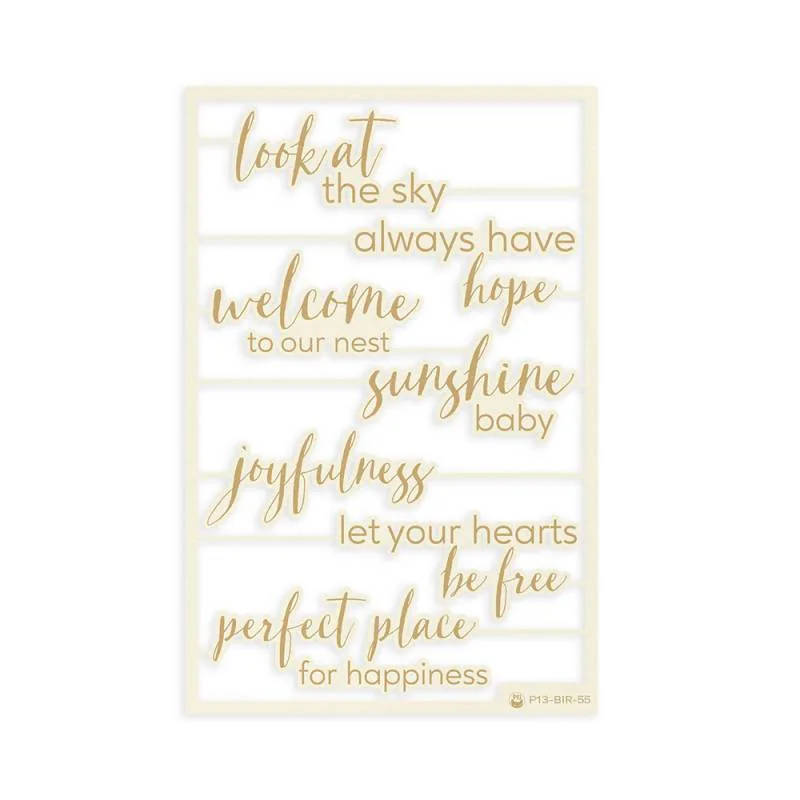 look at
the sky
always have
hope
welcome
to our nest
sunshine
baby
joyfulness
let your hearts
be free
perfect place
for happiness
P13-BIR-55